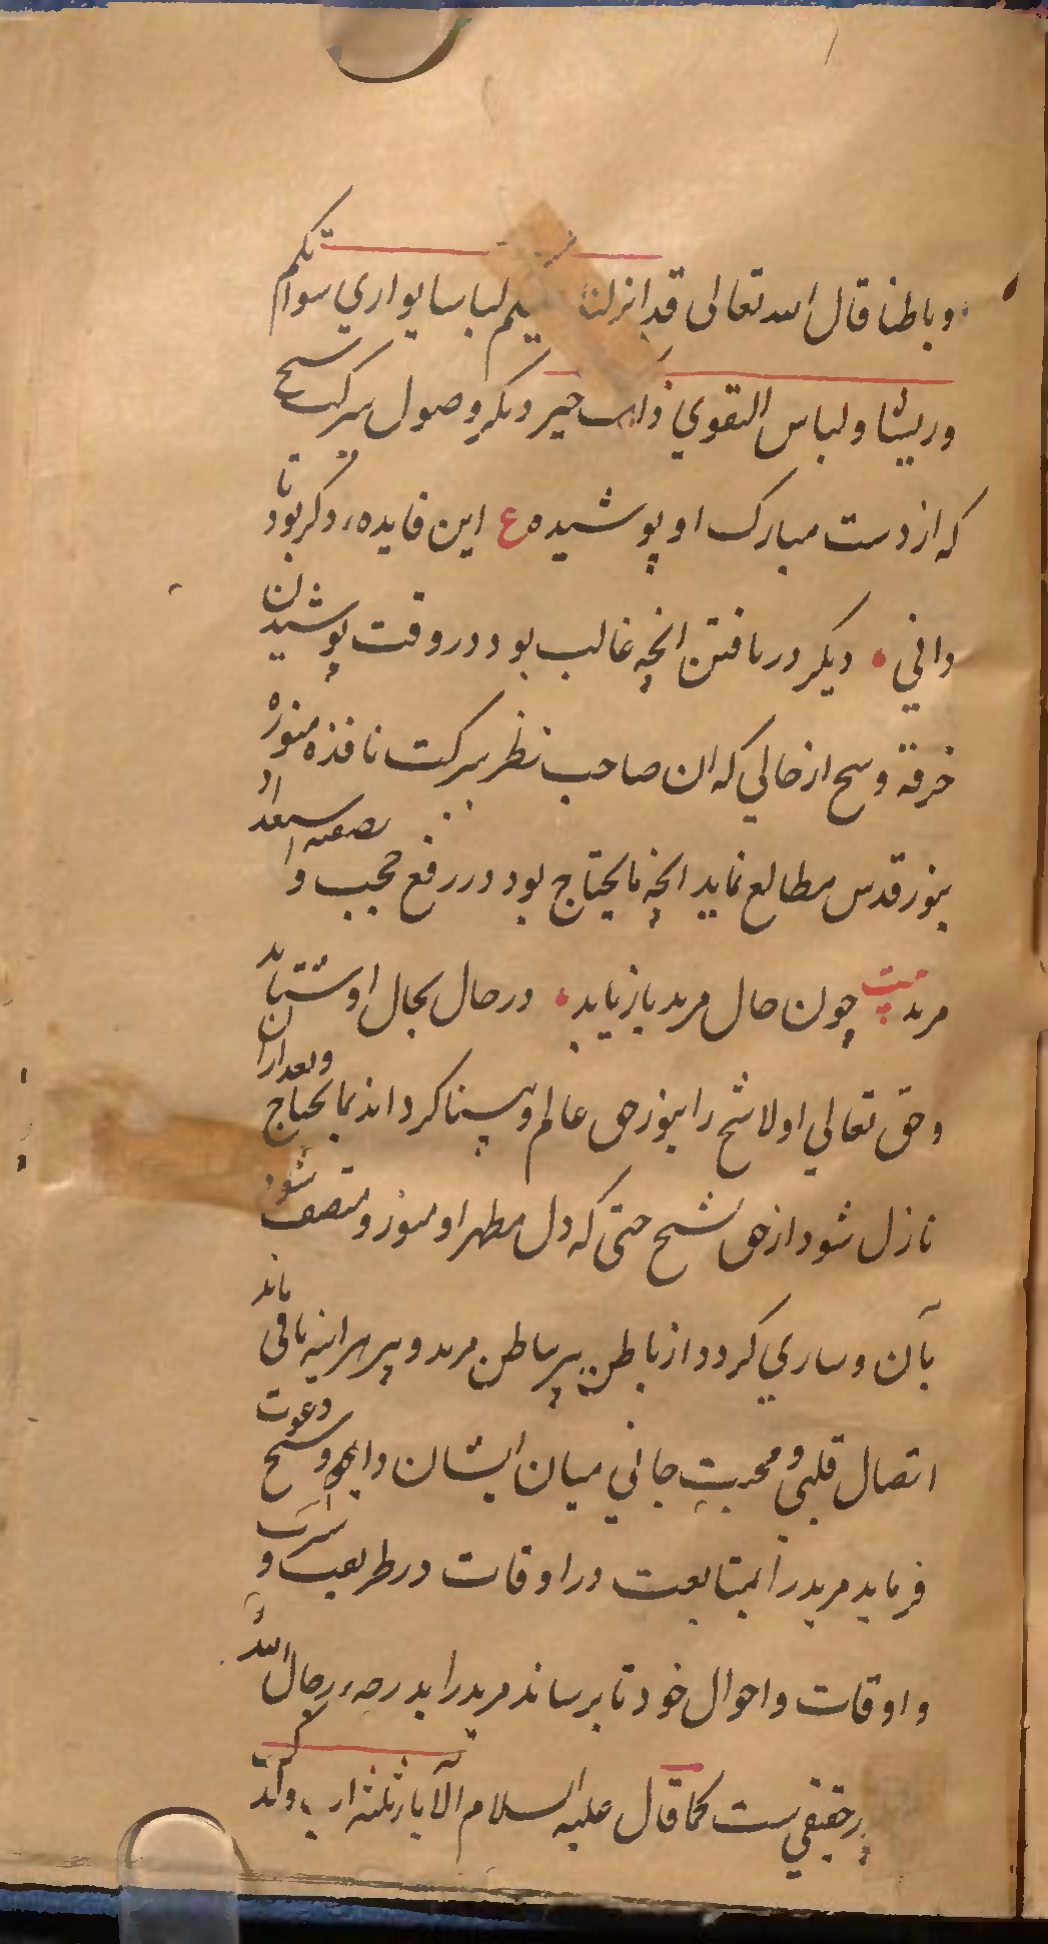 وباطنا قال الله تعالی قد انزلنا علیکم لباسا یواری سواتکم
وریشا ولباس التقوي ذلک خیر دیکر وصول ببرکت شیخ
که از دست مبارک او پوشیده ع این فایده دکر بود تا
وافي دیکر دریافتن انچه غالب بود در وقت پوشیدن
خرقة وشیخ از حالي که ان صاحب نظر ببرکت نافذه منوره
بنور قدس مطالع نماید انچه مایحتاج بود در رفع حجب و تصفیه استعداد
مرید بیت چون حال مرید بازیابد در حال بحال او شتابد
وحق تعالي اولا شیخ را بنور حق عالم وبینا کرداند بمایحتاج وبعد ازان
نازل شود از حق شیخ حتی که دل مطهر او منور و متصف شود
بآن وساري کردد از باطن پیر بباطن مرید و پیر هراینه باقی ماند
اتصال قلبی و محبت جاني میان ایشان دایم و شیخ دعوت
فرماید مرید را بمتابعت در اوقات در طریقت و
واوقات واحوال خود تا برساند مرید را بدرجه رجال الله
پر حقیقي ست کما قال علیه السلام الآباء ثلثة اب ولدک